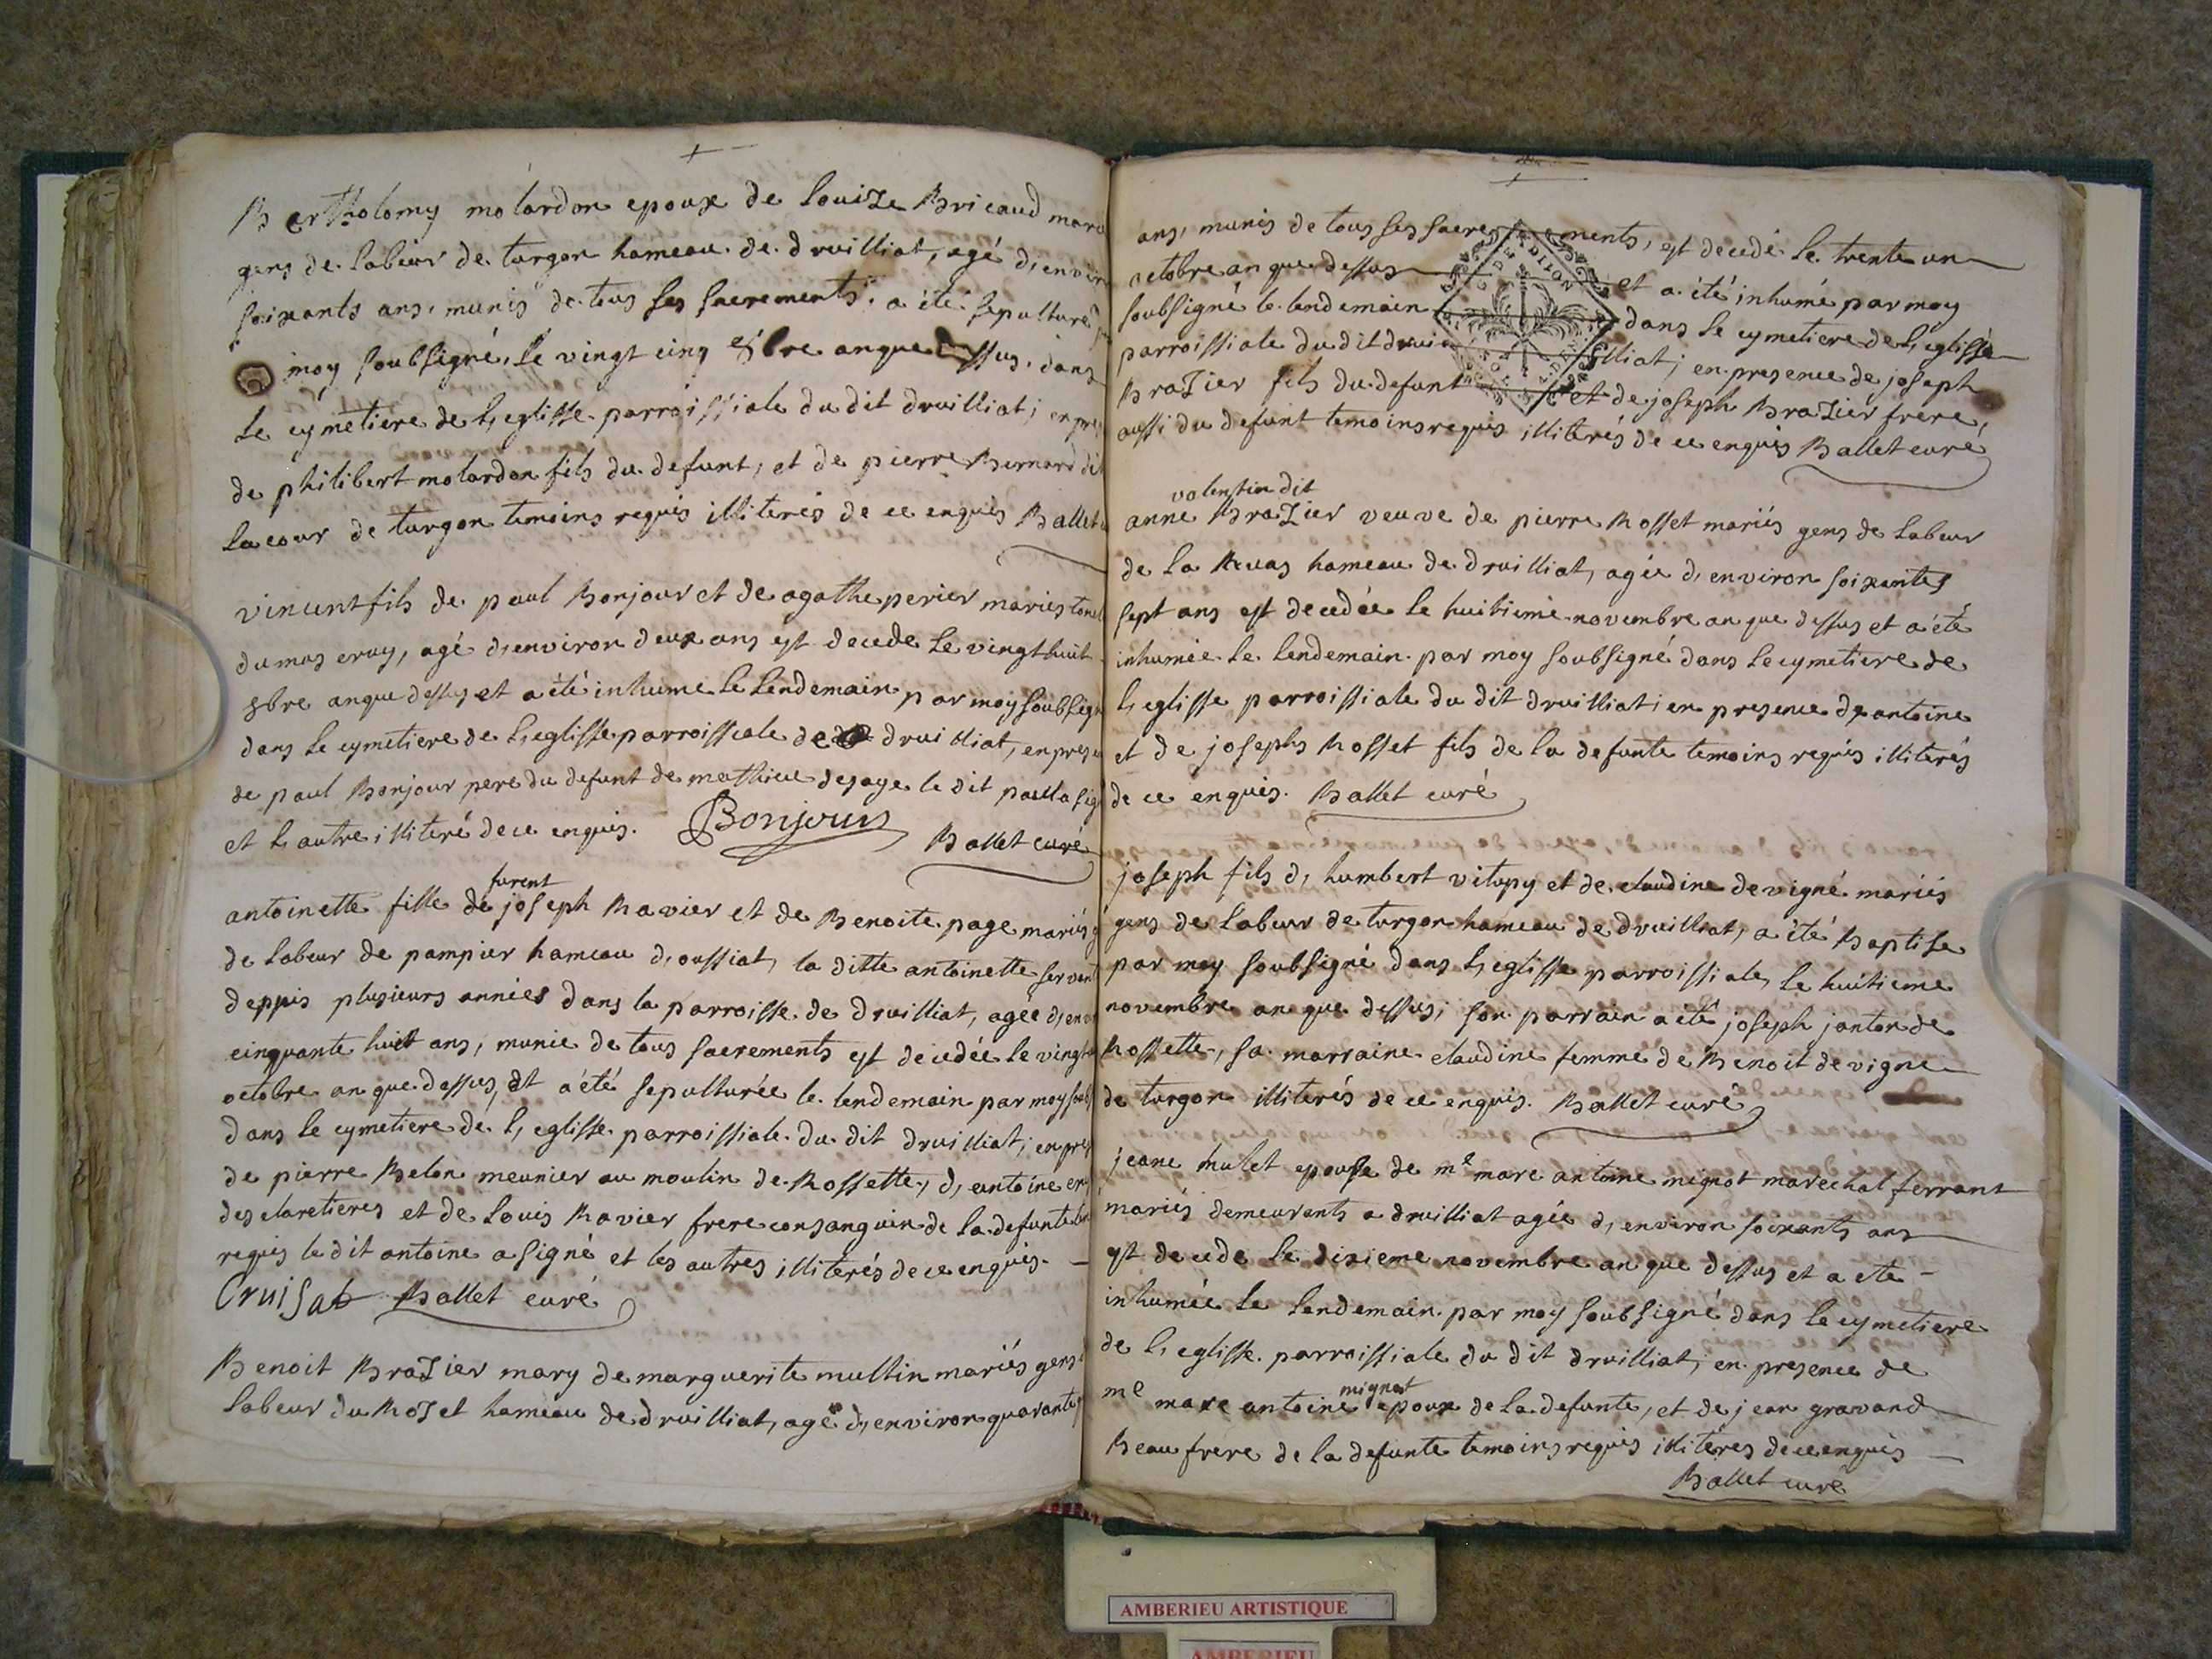 Bartholomy molardon epoux de louize Bricaud
gens de labeur de turgon hameau de druilliat, agé d, environ
soixants ans, munis de tous ses sacrements, a été sepulturé
moy soubsigné, le vingt cinq 8bre an que dessus, dans
le cymetiere de l, eglisse parroissiale du dit druilliat; en
de philibert molardon fils du defunt, et de pierre Bernard dit
lacour de turgon temoins requis illiterés de ce enquis Ballet
vincent fils de paul Bonjour et de agathe perier mariés
du mas cruy, agé d, environ deux ans est decede le vingt huit
8bre an que dessus et a été inhume le lendemain par moy soubsigné
dans le cymetiere de l, eglisse parroissiale de druilliat, en
de paul Bonjour pere du defunt de mathieu desaye le dit paul a
et l, autre illiteré de ce enquis. Bonjour
Ballet curé
furent
antoinette fille de joseph Ravier et de Benoite page mariés
de labeur de pampier hameau d, oussiat, la ditte antoinette
deppuis plusieurs années dans la parroisse de druilliat, agée d,
cinquante huit ans, munie de tous sacrements est decedée le
octobre an que dessus, et a été sepulturée le lendemain par moy
dans le cymetiere de l, eglisse parroissiale du dit druilliat; en
de pierre Belon meunier au moulin de Rossette, d, antoine
des claretieres et de louis Ravier frere consanguin de la defunte
requis le dit antoine a signé et les autres illiterés de ce enquis.
Cruisat Ballet curé
Benoit BraZier mary de marguerite multin mariés gens
labeur du RoZet hameau de druilliat, agé d, environ quarante
ans, munis de tous ses sacrements, est decedé le trente un
octobre an que dessus et a été inhumé par moy
soubsigné le lendemain dans le cymetiere de l, eglisse
parroissiale du dit druilliat; en presence de joseph
BraZier fils du defunt et de joseph BraZier frere,
aussi du defunt temoins requis illiterés de ce enquis Ballet curé
valentin dit
anne BraZier veuve de pierre Rosset mariés gens de labeur
de la hameau de druilliat, agée d, environ soixantes
sept ans est decedée le huitieme novembre an que dessus et a été
inhumée le lendemain par moy soubsigné dans le cymetiere de
l, eglisse parroissiale du dit druilliat; en presence de antoine
et de josephs Rosset fils de la defunte temoins requis illiterés
de ce enquis. Ballet curé
joseph fils d, humbert vitupy et de claudine devigne mariés
gens de labeur de turgon hameau de druilliat, a été baptise
par moy soubsigné dans l, eglisse parroissiale, le huitieme
novembre an que dessus; son parrain a été joseph janton de
Rossette, sa marraine claudine femme de Benoit devigne
de turgon illiterés de ce enquis. Ballet curé
jeane mulet epousse de me marc antoine mignot marechal ferrant
mariés demeurants a druilliat agée d, environ soixants ans
est decede le dixieme novembre an que dessus et a ete
inhumée le lendemain par moy soubsigné dans le cymetiere
de l, eglisse parroissiale du dit druilliat; en presence de
me marc antoine mignot epoux de la defunte, et de jean gravand
beau frere de la defunte temoins requis illiteres de ce enquis
Ballet curé
AMBERIEU ARTISTIQUE
AMBERIEU